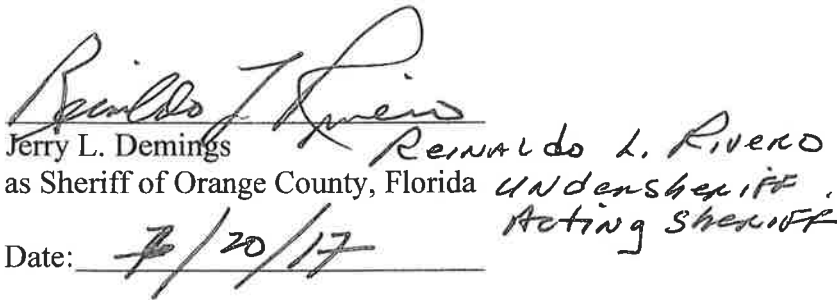 Reinaldo L Rivero
Jerry L. Demings REINALdo L. RIVERO
as Sheriff of Orange County, Florida UNdersheriff.
Acting Sheriff
Date: 7/20/17